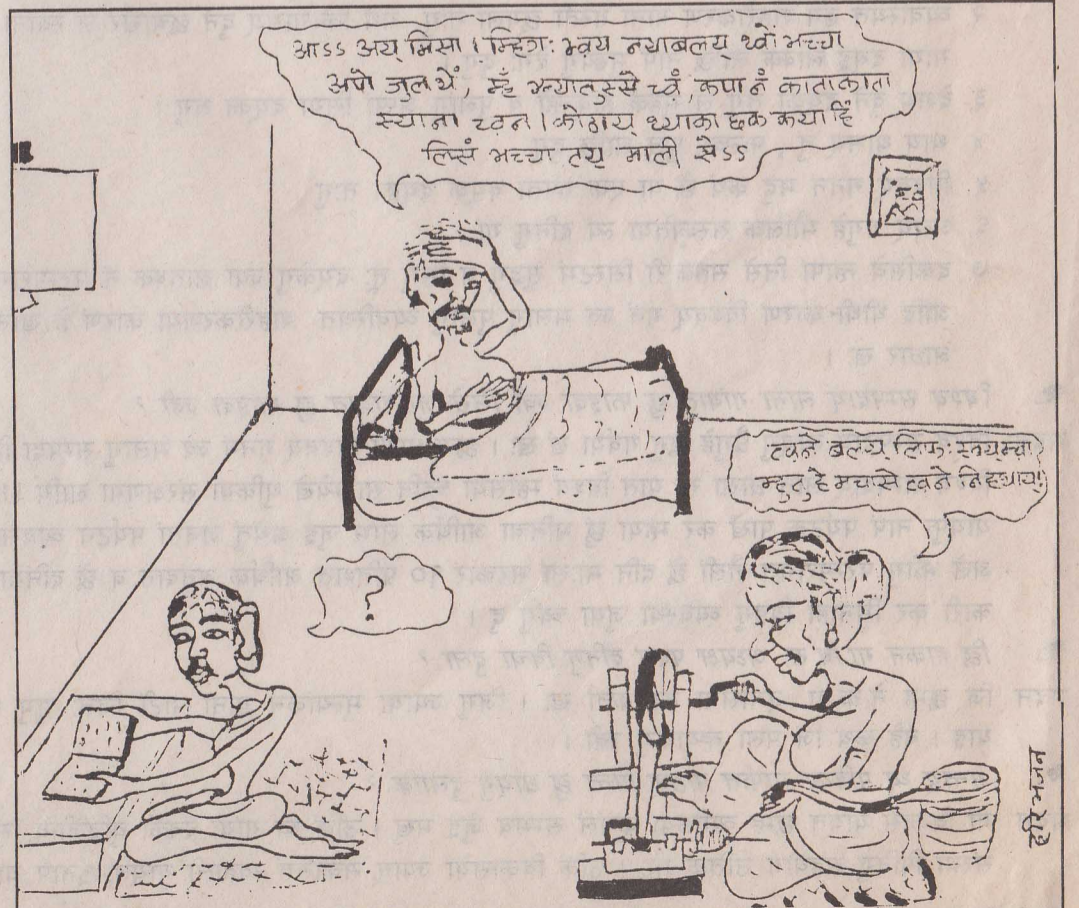 आऽऽ अय् मिसा । म्हिगः भ्वय् नयाबलय् थ्वो मच्चा
अपो जुल थें, म्हँ म्यातुस्से च्वं कपानं कातकाता
स्याना च्वन । कोठाय् थ्याक छक कया हिँ
लिसें मच्चा तयु माली सेऽऽ
?
हकनं बलय् लिकः
म्हतुहे मचासे हकनं
हरि भजन